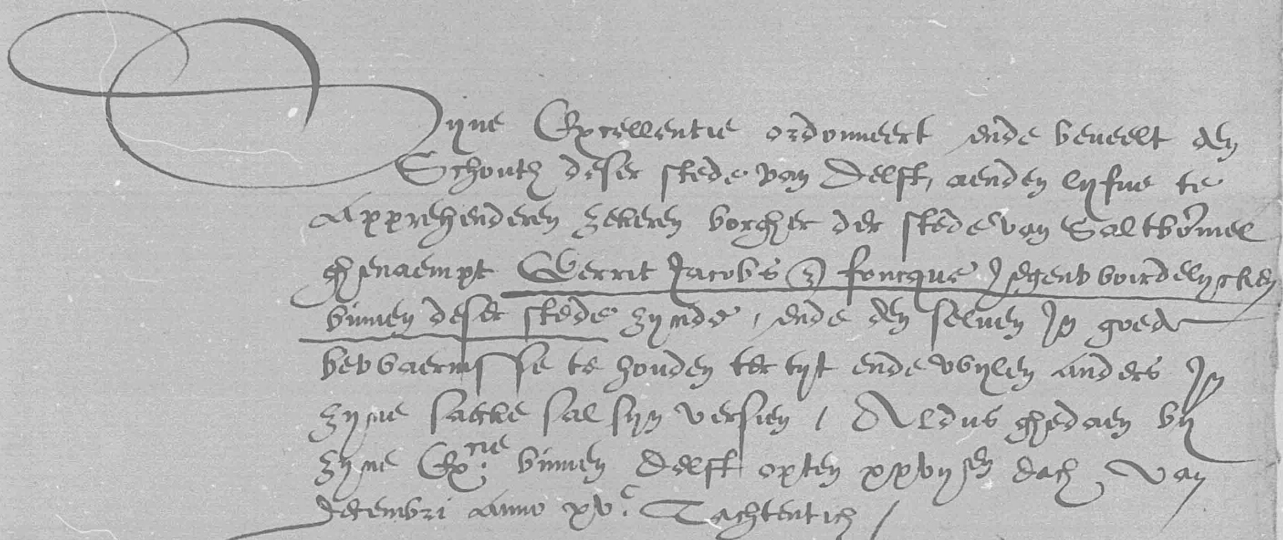 Zyne Excellentie ordonneert ende beveelt den
Schouth deser stede van Delft, aenden lyfve te
Apprehenderen zekeren borgher der stede van Saltbomel
ghenaempt Gerrit Jacobs z foncque Jegenwoirdelycken
binnen deser stede zynde, ende den selven Jn goede
bewaernisse te houden ter tyt ende wylen anders Jn
zyne saecke sal syn versien / Aldus ghedaen by
zyne Ex.cie binnen Delft opten xxvijsten dach van
decembri Anno xvc. Tachtentich /